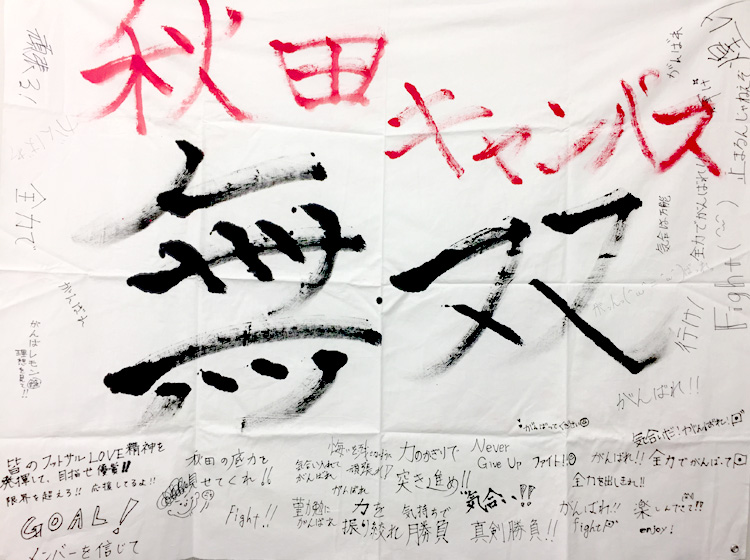 秋田
キャンパス
無双
頑張ろ!
がんばれ
全力で
がんばれ
がんばれ
止まるんじゃねえぞ
Fight
全力でがんばれ!
気合は万能
行け!
がんばれ!!
がんばってください
気合いだ!がんばれ!
皆のフットサルLOVE精神を
発揮して、目指せ優勝!!
限界を超えろ!!応援してるよ!!
GOAL!
メンバーを信じて
秋田の底力を
見せてくれ!!
Fight!!
気合い入れて
がんばれ
がんばれ
がんばれ
力を
振り絞れ
力のかぎりで
突き進め!!
気持ちで
勝負
Never
Give Up ファイト!
"気合い"!!
真剣勝負!!
がんばれ!!
全力を出しきれ!!
がんばれ!!
fight
全力でがんばって
楽しんだって!!
enjoy!